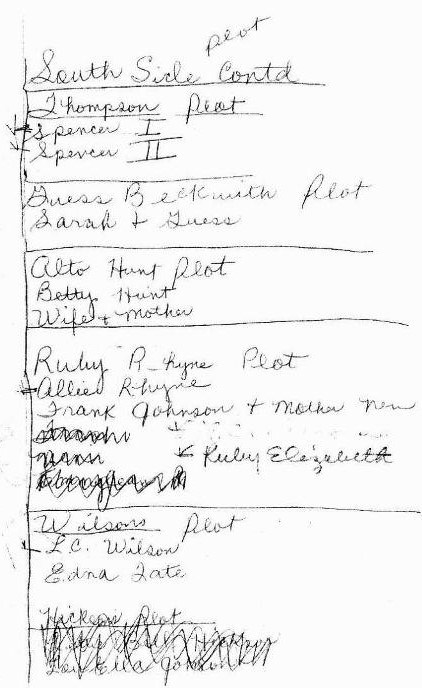 plot
South Side Contd
Thompson Plot
Spencer I
Spencer II
Guess Beckwith Plot
Sarah & Guess
Alto Hunt Plot
Betty Hunt
Wife & Mother
Ruby R-hyne Plot
Allies Rhyne
Frank Johnson & Mother new
Ruby Elizabeth
Wilsons Plot
L.C. Wilson
Edna Tate
Plot